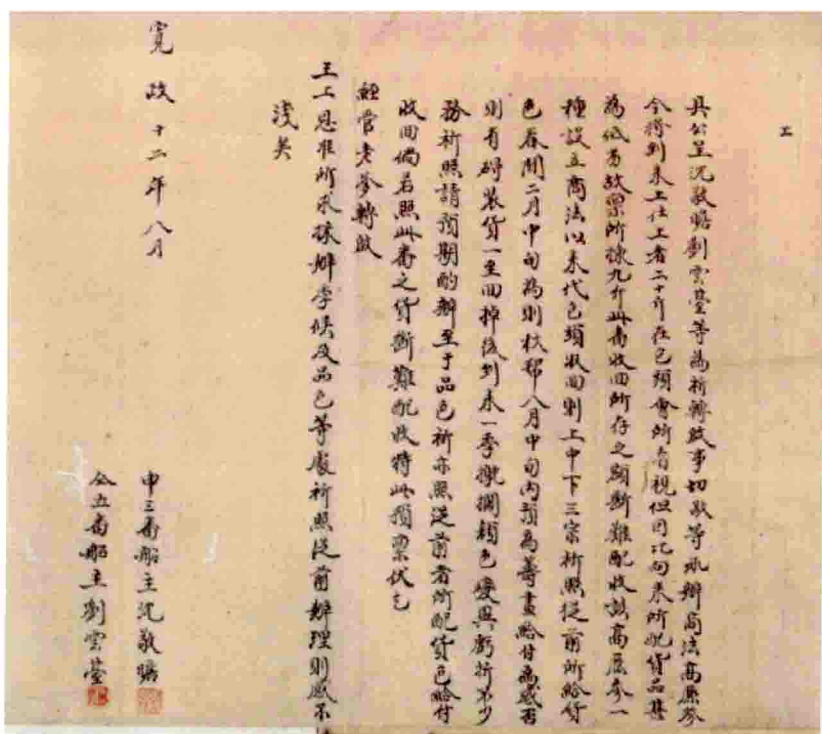 具公呈沈敬瞻劉雲臺等為祈轉啟事切敬等承辦商法高原參
今將到來上仕上者二十斤在包頭會所看視但因比向來所配貨品甚
為低劣故稟所揀九斤此番收回所存之額斷難配收該高原參一
種設立商法以來代包頭收回則上中下三宗祈照從前所給貨
色春間二月中旬為則秋幫八月中旬內預為籌畫給付為感否
則有碍裝貨一至回掉後到來一季擔擱顏色變異虧折不少
務祈照請預期酌辦至于品色祈亦照從前者所配貨色給付
收回倘若照此番之貨斷難配收特此預稟伏乞
經管老爹轉啟
王上恩准所求採辦季候及品色等處祈照從前辦理則感不
淺矣
寬政十二年八月
申三番船主沈敬瞻
仝五番船主劉雲臺